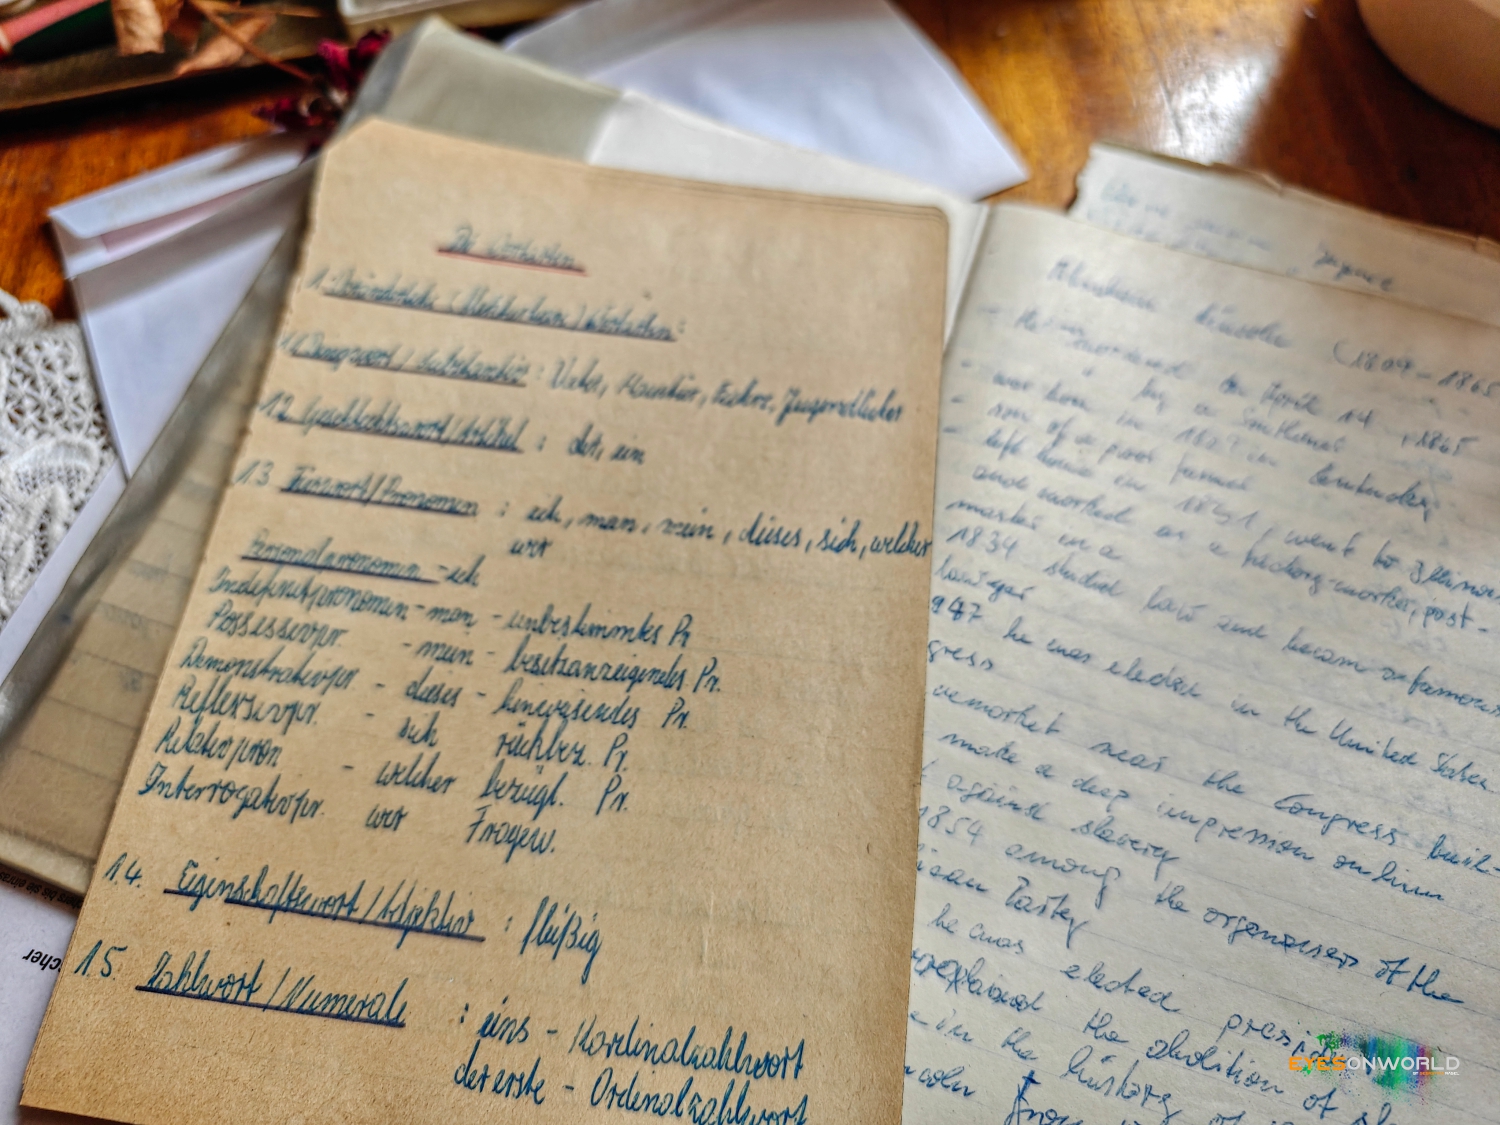 Die Wortarten
1. Veränderliche (flektierbare) Wortarten:
11 Dingwort/Substantiv: Vater, Haustür, Jugendlicher
12 Geschlechtswort/Artikel : der, ein
13 Fürwort/Pronomen : ich, man, mein, dieses, sich, welcher
wer
Personalpronomen - ich
Indefinitpronomen - man - unbestimmtes Pr
Possessivpr. - mein - besitzanzeigendes Pr.
Demonstrativpr - dieses - hinweisendes Pr.
Reflexivpr. - sich rückbez. Pr.
Relativpron - welcher bezügl. Pr.
Interrogativpr. wer Fragew.
14. Eigenschaftswort/Adjektiv : fleißig
15. Zahlwort/Numerale : eins - Kardinalzahlwort
der erste - Ordinalzahlwort
Abraham Lincoln (1809 - 1865
on April 14, 1865
by a
- was born in in Kentucky
- son of a poor farmer
- left home in 1831, went to Illinois
and worked as a worker, post-
master in a
1834 studied law and becam a famous
lawyer
947 he was elected in the United States
gress
near the Congress buil-
make a deep impression on him
against slavery
1854 among the organiser of the
he was elected presi
the abolition of sla
in the history of
coln from
cher
EYESONWORLD